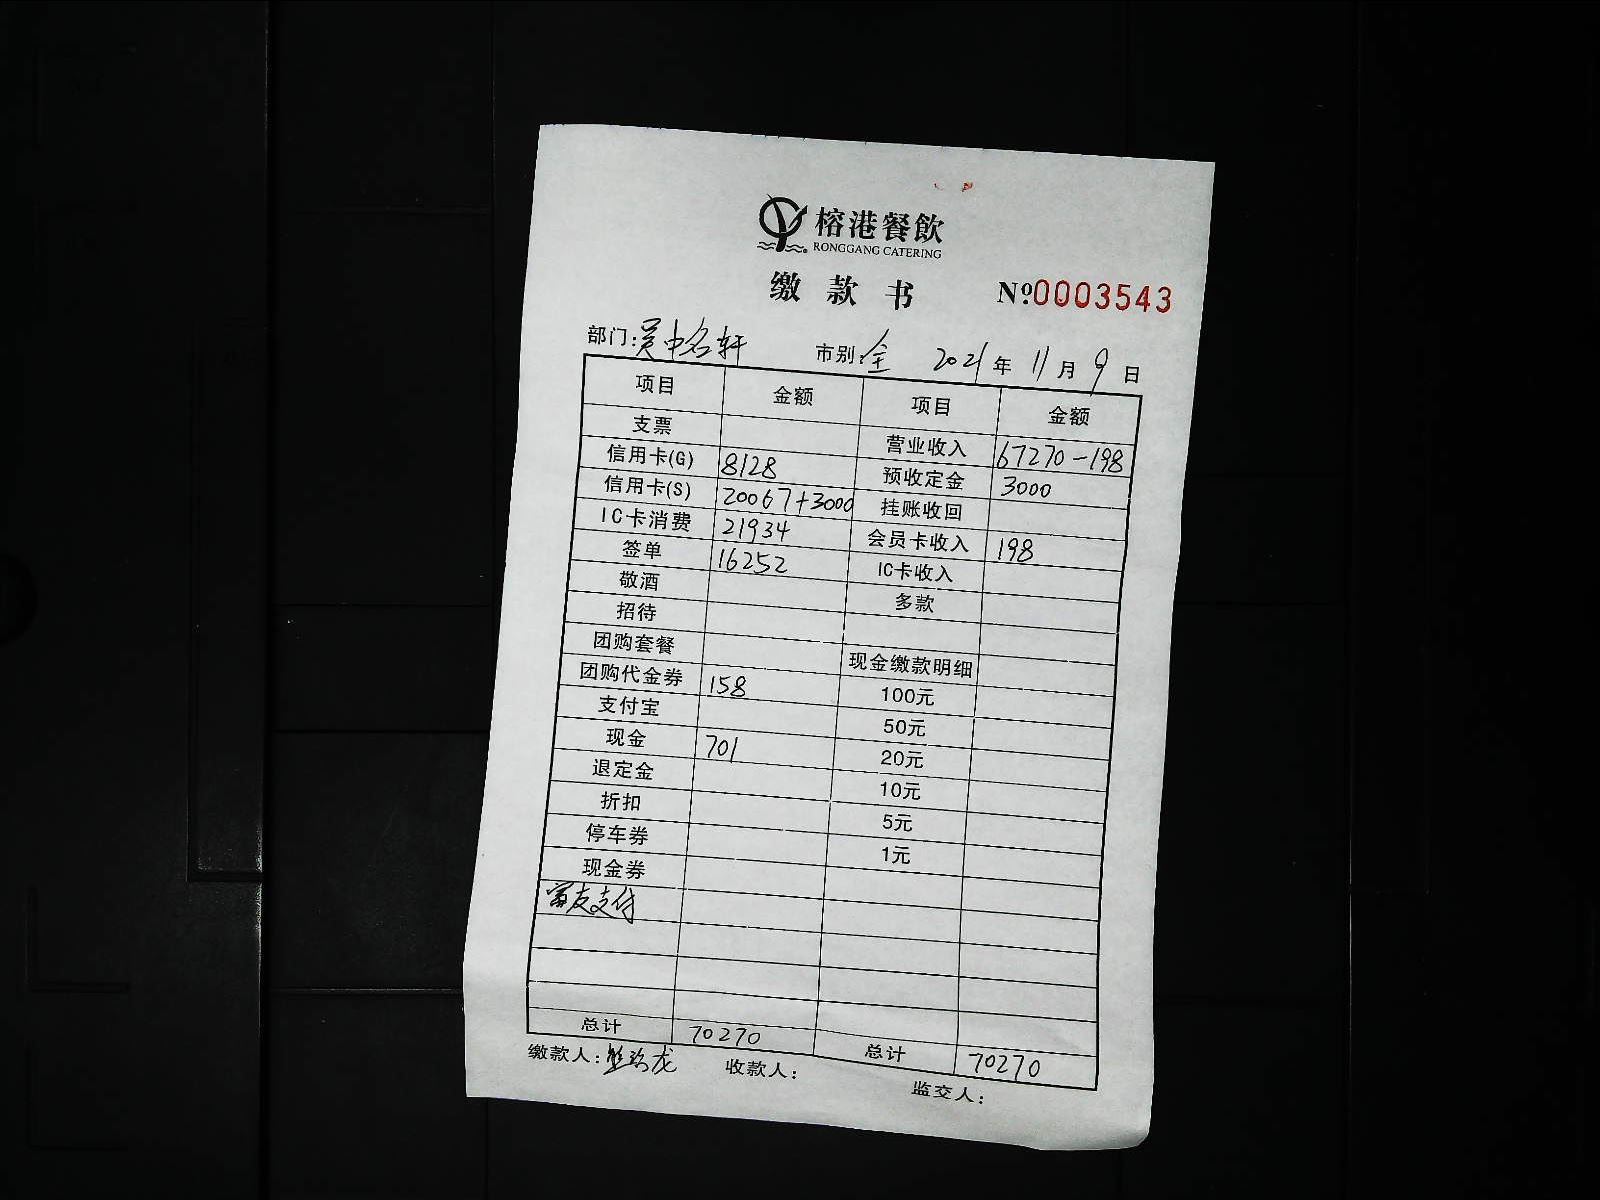 榕港餐飲
RONGGANG CATERING
缴款书 №0003543
部门:吴中名轩 市别:全 2021年11月9日
项目 金额 项目 金额
支票 营业收入 67270-198
信用卡(G) 8128 预收定金 3000
信用卡(S) 20067+3000 挂账收回
IC卡消费 21934 会员卡收入 198
签单 16252 IC卡收入
敬酒 多款
招待
团购套餐 现金缴款明细
团购代金券 158 100元
支付宝 50元
现金 701 20元
退定金 10元
折扣 5元
停车券 1元
现金券
富友支付
总计 70270 总计 70270
缴款人: 收款人: 监交人: